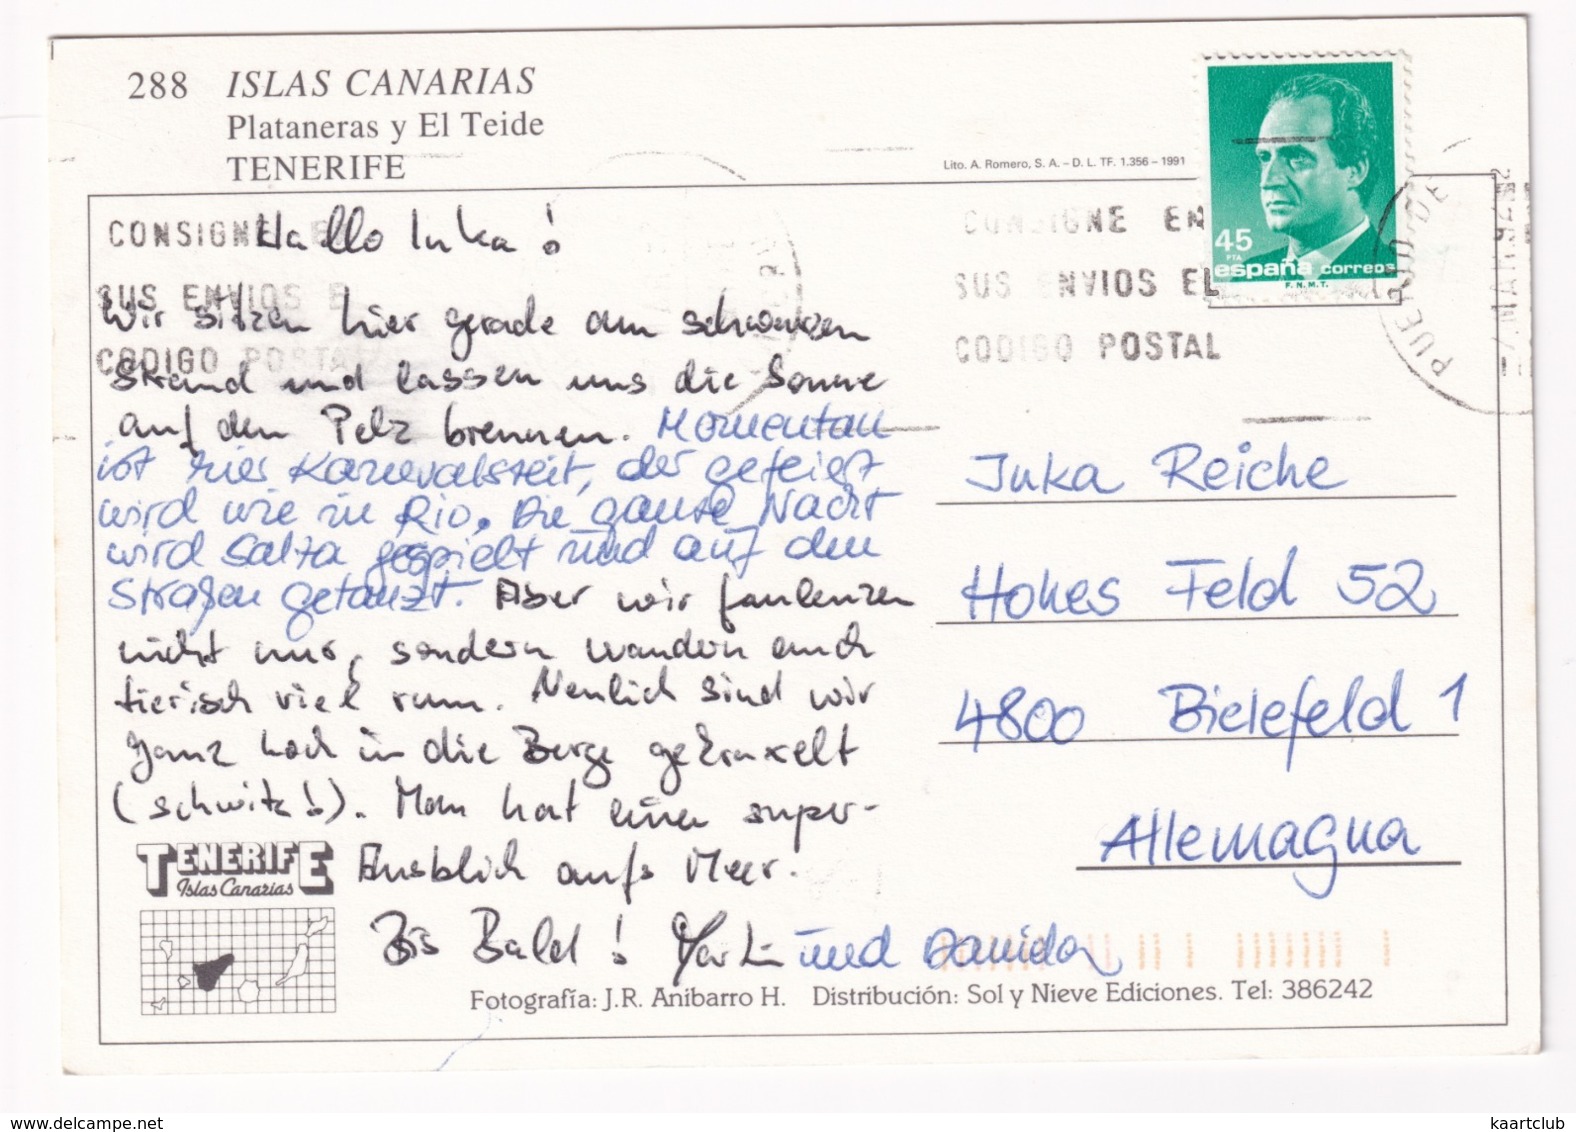 288 ISLAS CANARIAS
Plataneras y El Teide
TENERIFE
Lito. A. Romero, S. A. – D. L. TF. 1.356 – 1991
45
PTA
españa correos
F.N.M.T.
CONSIGNE EN
SUS ENVIOS EL
CODIGO POSTAL
CONSIGNE EN
SUS ENVIOS EL
CODIGO POSTAL
PUERTO DE
Hallo Inka!
Wir sitzen hier gerade am schwarzen
Strand und lassen uns die Sonne
auf den Pelz brennen. Momentan
ist hier Karnevalszeit, der gefeiert
wird wie in Rio. Die ganze Nacht
wird Salsa gespielt und auf den
Straßen getanzt. Aber wir faulenzen
nicht nur, sondern wandern auch
tierisch viel rum. Neulich sind wir
ganz hoch in die Berge gekraxelt
(schwitz!). Man hat einen super-
Ausblick aufs Meer.
Bis Bald! Martin und Daniela
Inka Reiche
Hohes Feld 52
4800 Bielefeld 1
Allemagna
TENERIFE
Islas Canarias
Fotografía: J.R. Anibarro H. Distribución: Sol y Nieve Ediciones. Tel: 386242
www.delcampe.net
kaartclub